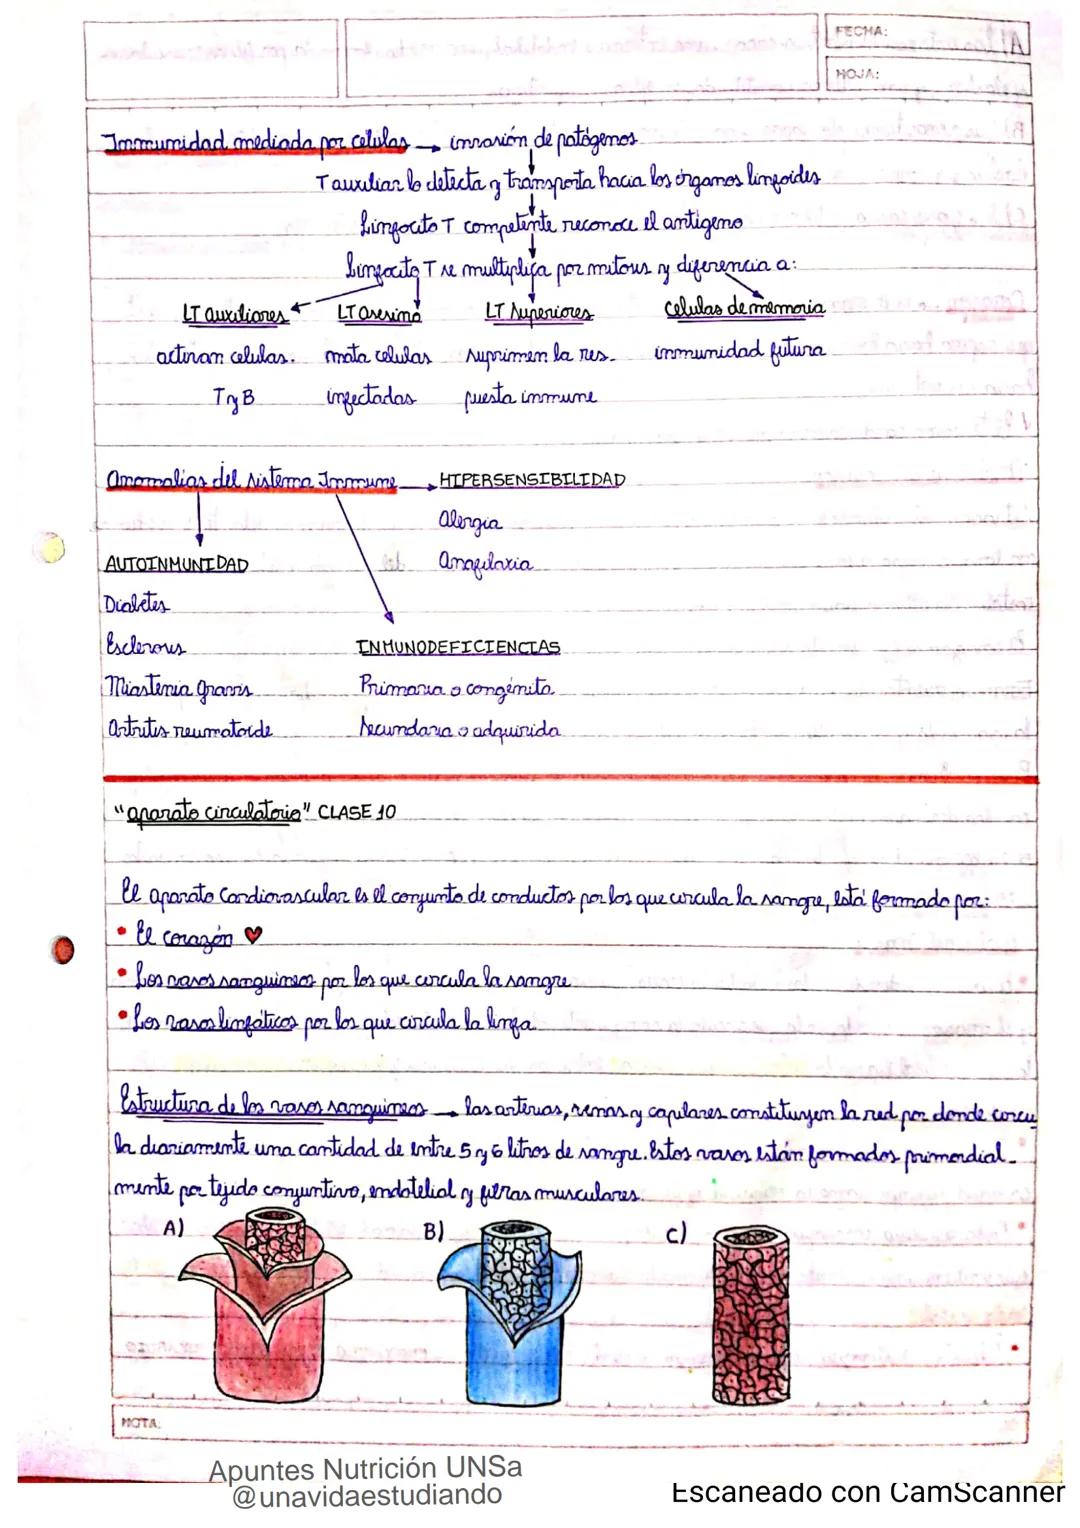 FECHA:
HOJA:
Inmunidad mediada por celulas → invasión de patógenos
T auxiliar lo detecta y transporta hacia los órganos linfoides
Linfocito T competente reconoce el antígeno
Linfocito T se multiplica por mitosis y diferencia a:
LT auxiliares LT asesino LT Superiores celulas de memoria
activan celulas. mata celulas suprimen la res- inmunidad futura
T y B infectadas puesta inmune
Anomalias del sistema Inmune → HIPERSENSIBILIDAD
Alergia
AUTOINMUNIDAD Anafilaxia
Diabetes
Esclerosis INMUNODEFICIENCIAS
Miastenia gravis Primaria o congénita
Artritis reumatoide secundaria o adquirida
"aparato circulatorio" CLASE 10
El aparato Cardiovascular es el conjunto de conductos por los que circula la sangre, está formado por:
• El corazón ♥
• Los vasos sanguineos por los que circula la sangre
• Los vasos linfáticos por los que circula la linfa
Estructura de los vasos sanguineos → las arterias, venas y capilares constituyen la red por donde circu
la diariamente una cantidad de entre 5 y 6 litros de sangre. Estos vasos están formados primordial-
mente por tejido conjuntivo, endotelial y fibras musculares.
A) B) C)
NOTA:
Apuntes Nutrición UNSa
@unavidaestudiando
Escaneado con CamScanner